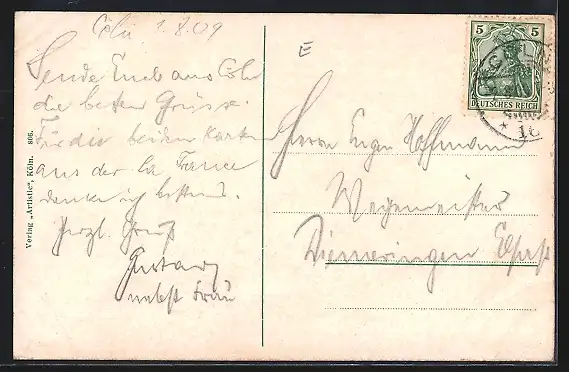 Cöln 1.8.09
Sende Euch aus Cöln
die besten Grüsse.
Für die beiden Karten
aus der la France
danke ich bestens.
Herzl. Gruß
Gustav
nebst Frau
Verlag „Artistic", Köln. 806.
E
5 5
DEUTSCHES REICH
Herrn Eugen Hoffmann
Wegemeister
Diemeringen Elsass